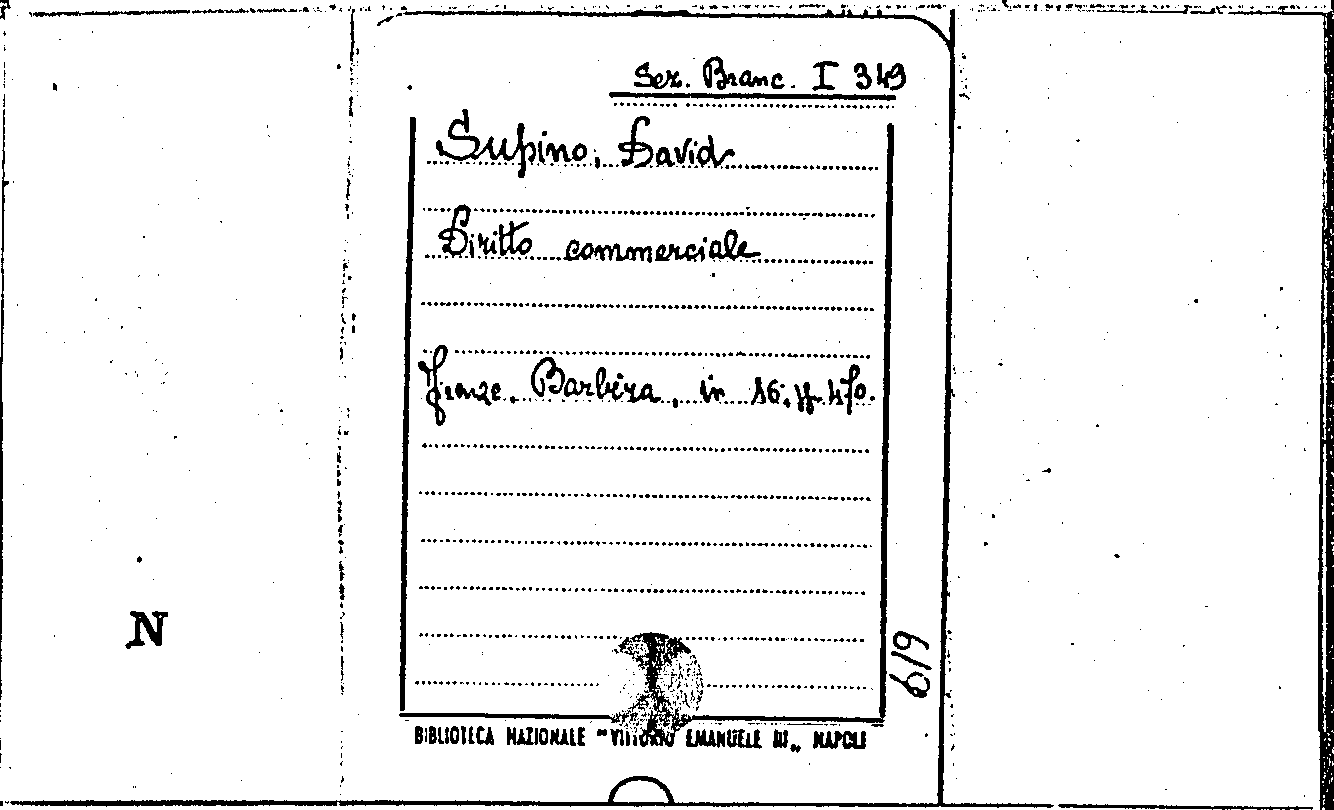 Sez. Branc. I 349
Supino, David
Diritto commerciale
Firenze, Barbèra, in 16, pp. 470.
619
N
BIBLIOTECA NAZIONALE "VITTORIO EMANUELE III„ NAPOLI